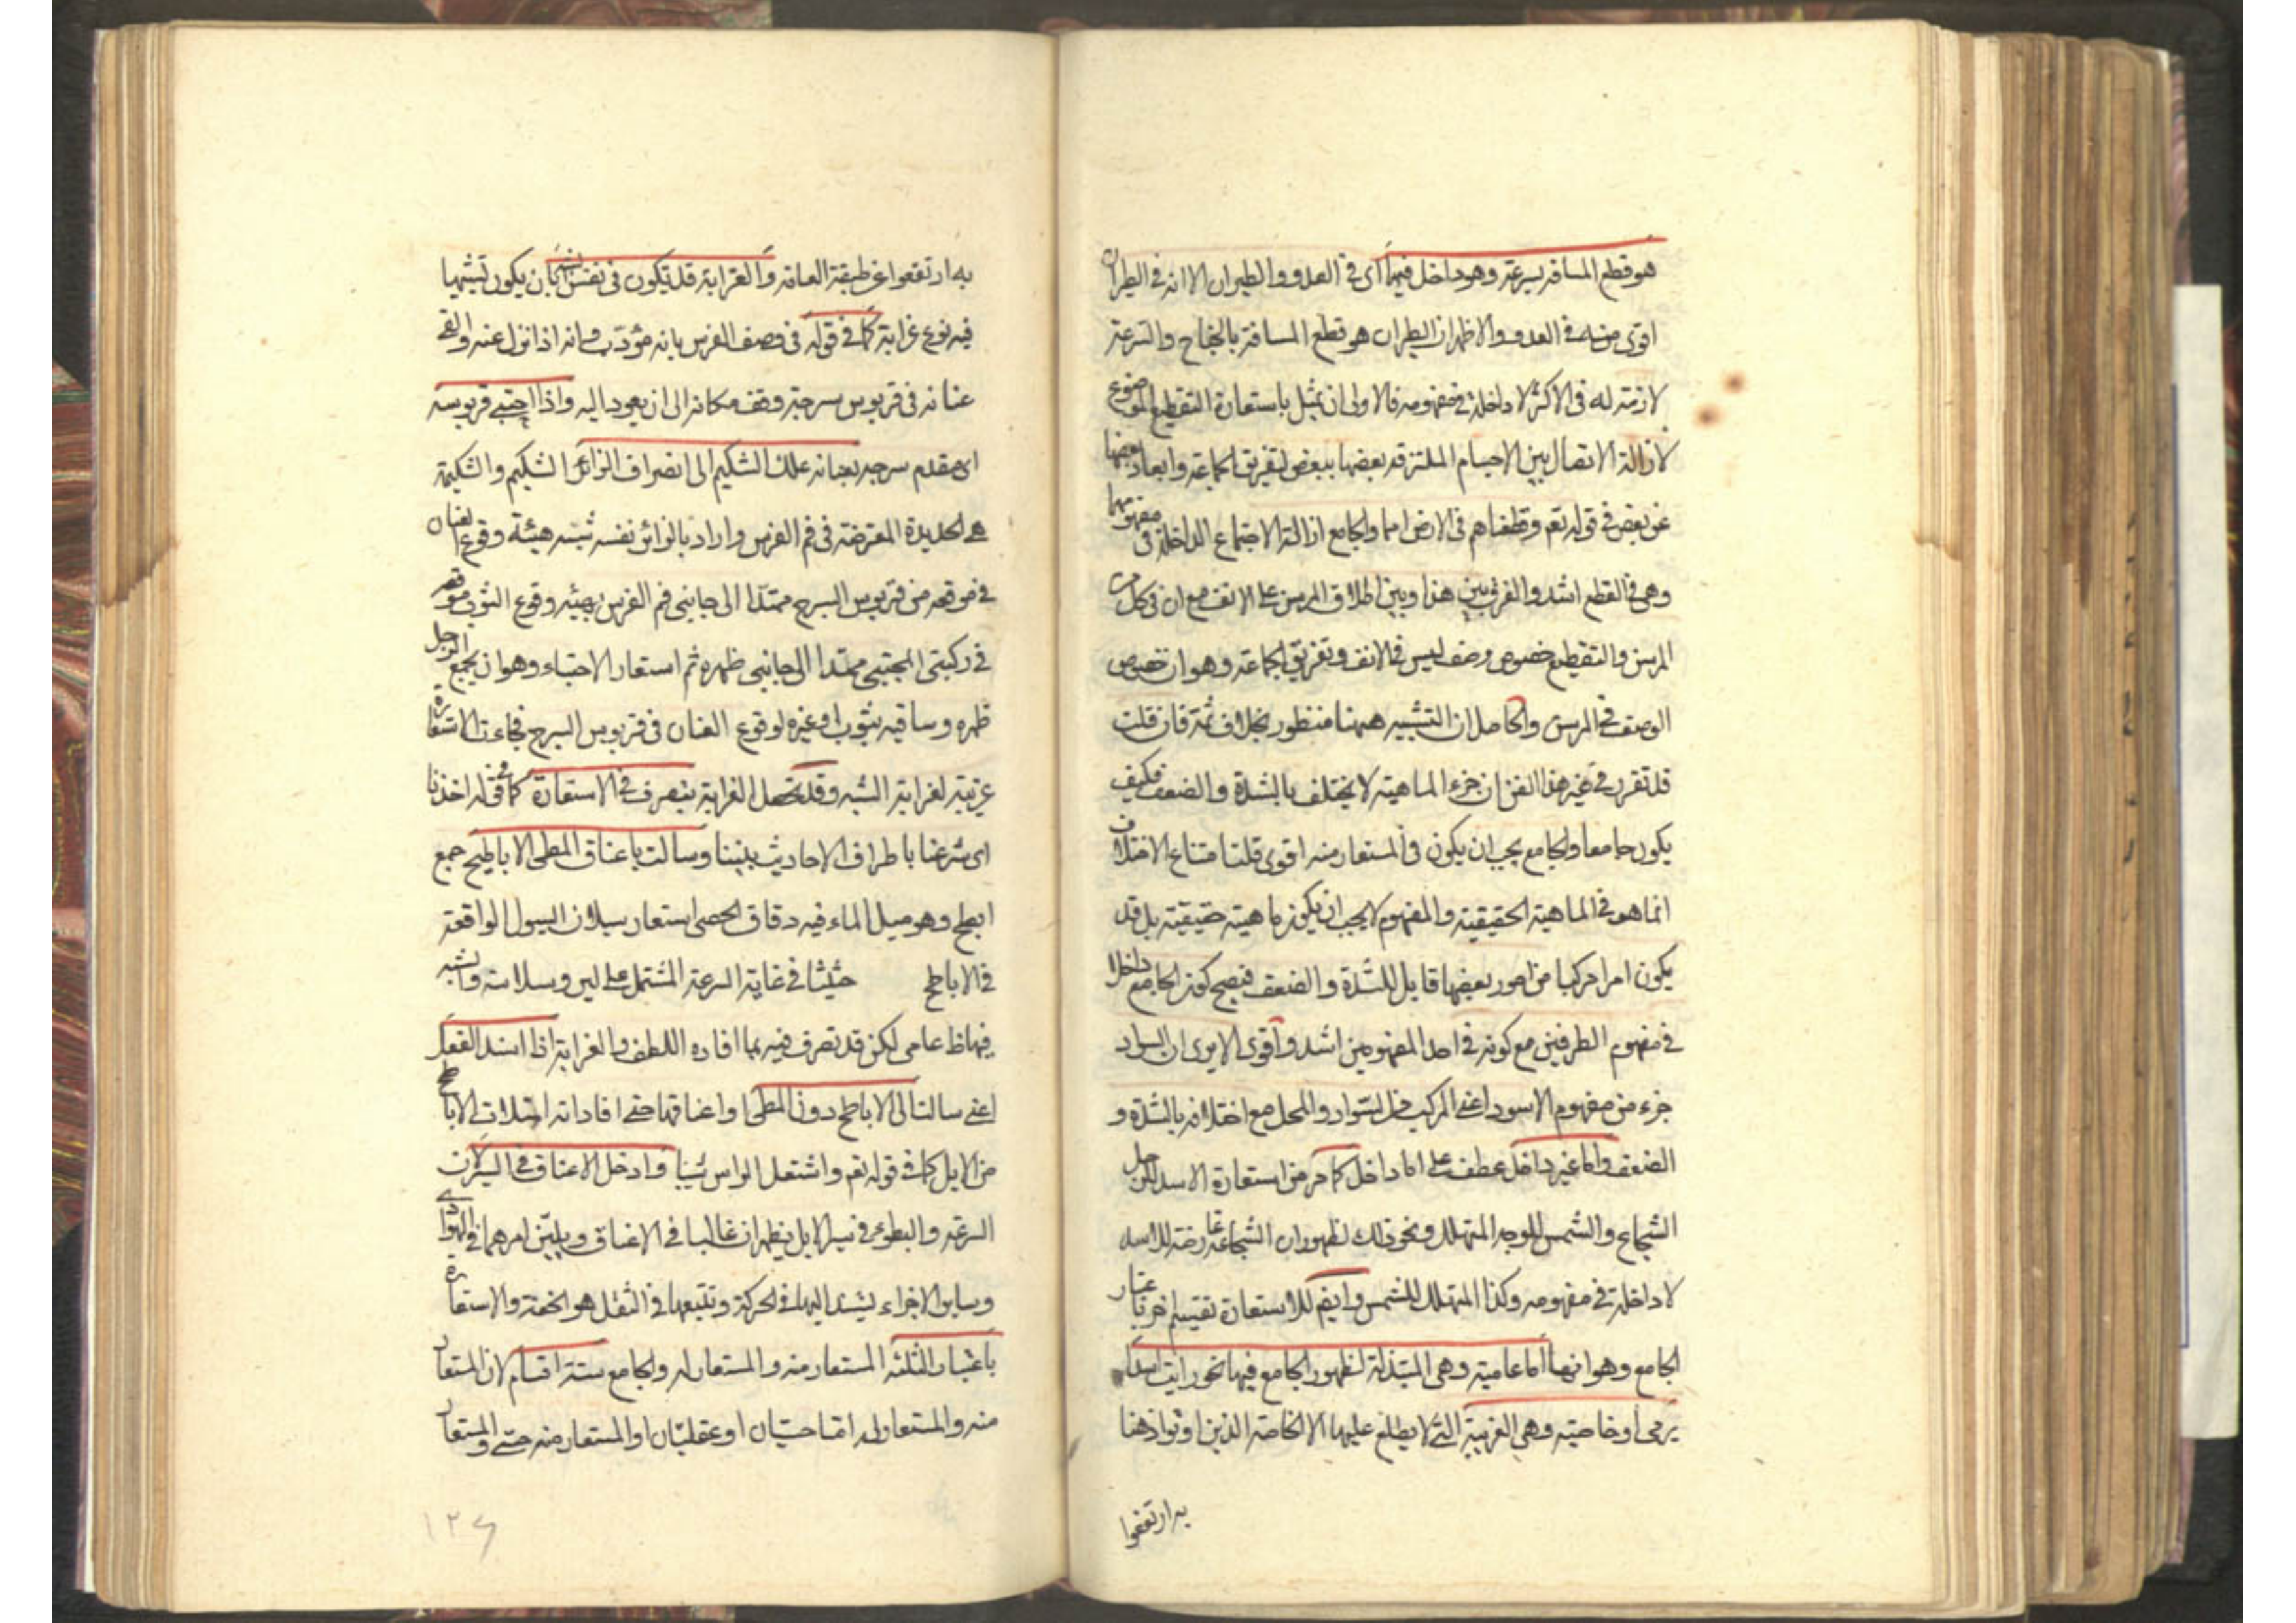 هو قطع المسافة بسرعة وهو داخل فيهما اى في العدو والطيران الا انه في الطيران
اقوى منه في العدو والاظهر ان الطيران هو قطع المسافة بالجناح والسرعة
لازمة له في الاكثر لا داخلة في مفهومه فالاولى ان يمثل باستعارة التقطيع الموضوع
لازالة الاتصال بين الاجسام الملتزقة بعضها ببعض لتفريق الجماعة وابعاد بعضها
عن بعض في قوله تعم وقطعناهم في الارض امما والجامع ازالة الاجتماع الداخلة في مفهومهما
وهي في القطع اشد والفرق بين هذا وبين اطلاق المرسن على الانف مع ان في كل من
المرسن والتقطيع خصوص وصف ليس في الانف وتفريق الجماعة وهو ان خصوص
الوصف في المرسن والحاصل ان التشبيه ههنا منظور بخلاف ثمة فان قلت
قد تقرر في غير هذا الفن ان جزء الماهية لا يختلف بالشدة والضعف فكيف
يكون جامعا والجامع يجب ان يكون في المستعار منه اقوى قلت امتناع الاختلاف
انما هو في الماهية الحقيقية والمفهوم لا يجب ان يكون ماهية حقيقية بل قد
يكون امرا مركبا من امور بعضها قابل للشدة والضعف فيصح كون الجامع داخلا
في مفهوم الطرفين مع كونه في احد المفهومين اشد واقوى الا يرى ان السواد
جزء من مفهوم الاسود اعنى المركب من السواد والمحل مع اختلافه بالشدة و
الضعف واما غير داخل عطف على اما داخل كما مر من استعارة الاسد للرجل
الشجاع والشمس للوجه المتهلل ونحو ذلك لظهور ان الشجاعة عارضة للاسد
لا داخلة في مفهومه وكذا المتهلل للشمس وايضم للاستعارة تقسيم اخر باعتبار
الجامع وهو انها اما عامية وهي المبتذلة لظهور الجامع فيها نحو رايت اسدا
يرمى او خاصية وهي الغريبة التى لا يطلع عليها الا الخاصة الذين اوتوا ذهنا
به ارتفعوا
به ارتفعوا عن طبقة العامة والغرابة قد تكون في نفس الشبه بان يكون تشبيها
فيه نوع غرابة كما في قوله في وصف الفرس بانه مؤدب وانه اذا نزل عنه والقى
عنانه في قربوس سرجه وقف مكانه الى ان يعود اليه واذا احتبى قربوسه
اى مقدم سرجه بعنانه علك الشكيم الى انصراف الزائر الشكيم والشكيمة
هى الحديدة المعترضة في فم الفرس واراد بالزائر نفسه شبه هيئة وقوع العنان
في موقعه من قربوس السرج ممتدا الى جانبى فم الفرس بهيئة وقوع الثوب موقعه
في ركبتى المحتبى ممتدا الى جانبى ظهره ثم استعار الاحتباء وهو ان يجمع الرجل
ظهره وساقيه بثوب او غيره لوقوع العنان في قربوس السرج فجاءت الاستعارة
غريبة لغرابة الشبه وقد تحصل الغرابة بتصرف في الاستعارة كما في قوله اخذنا
اى شرعنا باطراف الاحاديث بيننا وسالت باعناق المطى الاباطيح جمع
ابطح وهو مسيل الماء فيه دقاق الحصى استعار سيلان السيول الواقعة
في الاباطح حثيثا في غاية السرعة المشتمل على لين وسلاسة والشبه
فيها ظ عامى لكن قد تصرف فيه بما افاده اللطف والغرابة اذا اسند الفعل
اعنى سالت الى الاباطح دون المطى او اعناقها حتى افاد انه امتلات الاباطح
من الابل كما في قوله تعم واشتعل الراس شيبا وادخل الاعناق في السير لان
السرعة والبطوء في سير الابل يظهران غالبا في الاعناق ويبين امرهما في الهوادى
وساير الاجزاء يستند اليها في الحركة وتتبعها في الثقل هو الخفة والاستعارة
باعتبار الثلثة المستعار منه والمستعار له والجامع ستة اقسام لان المستعار
منه والمستعار له اما حسيان او عقليان او المستعار منه حسى والمستعار
١٢٦